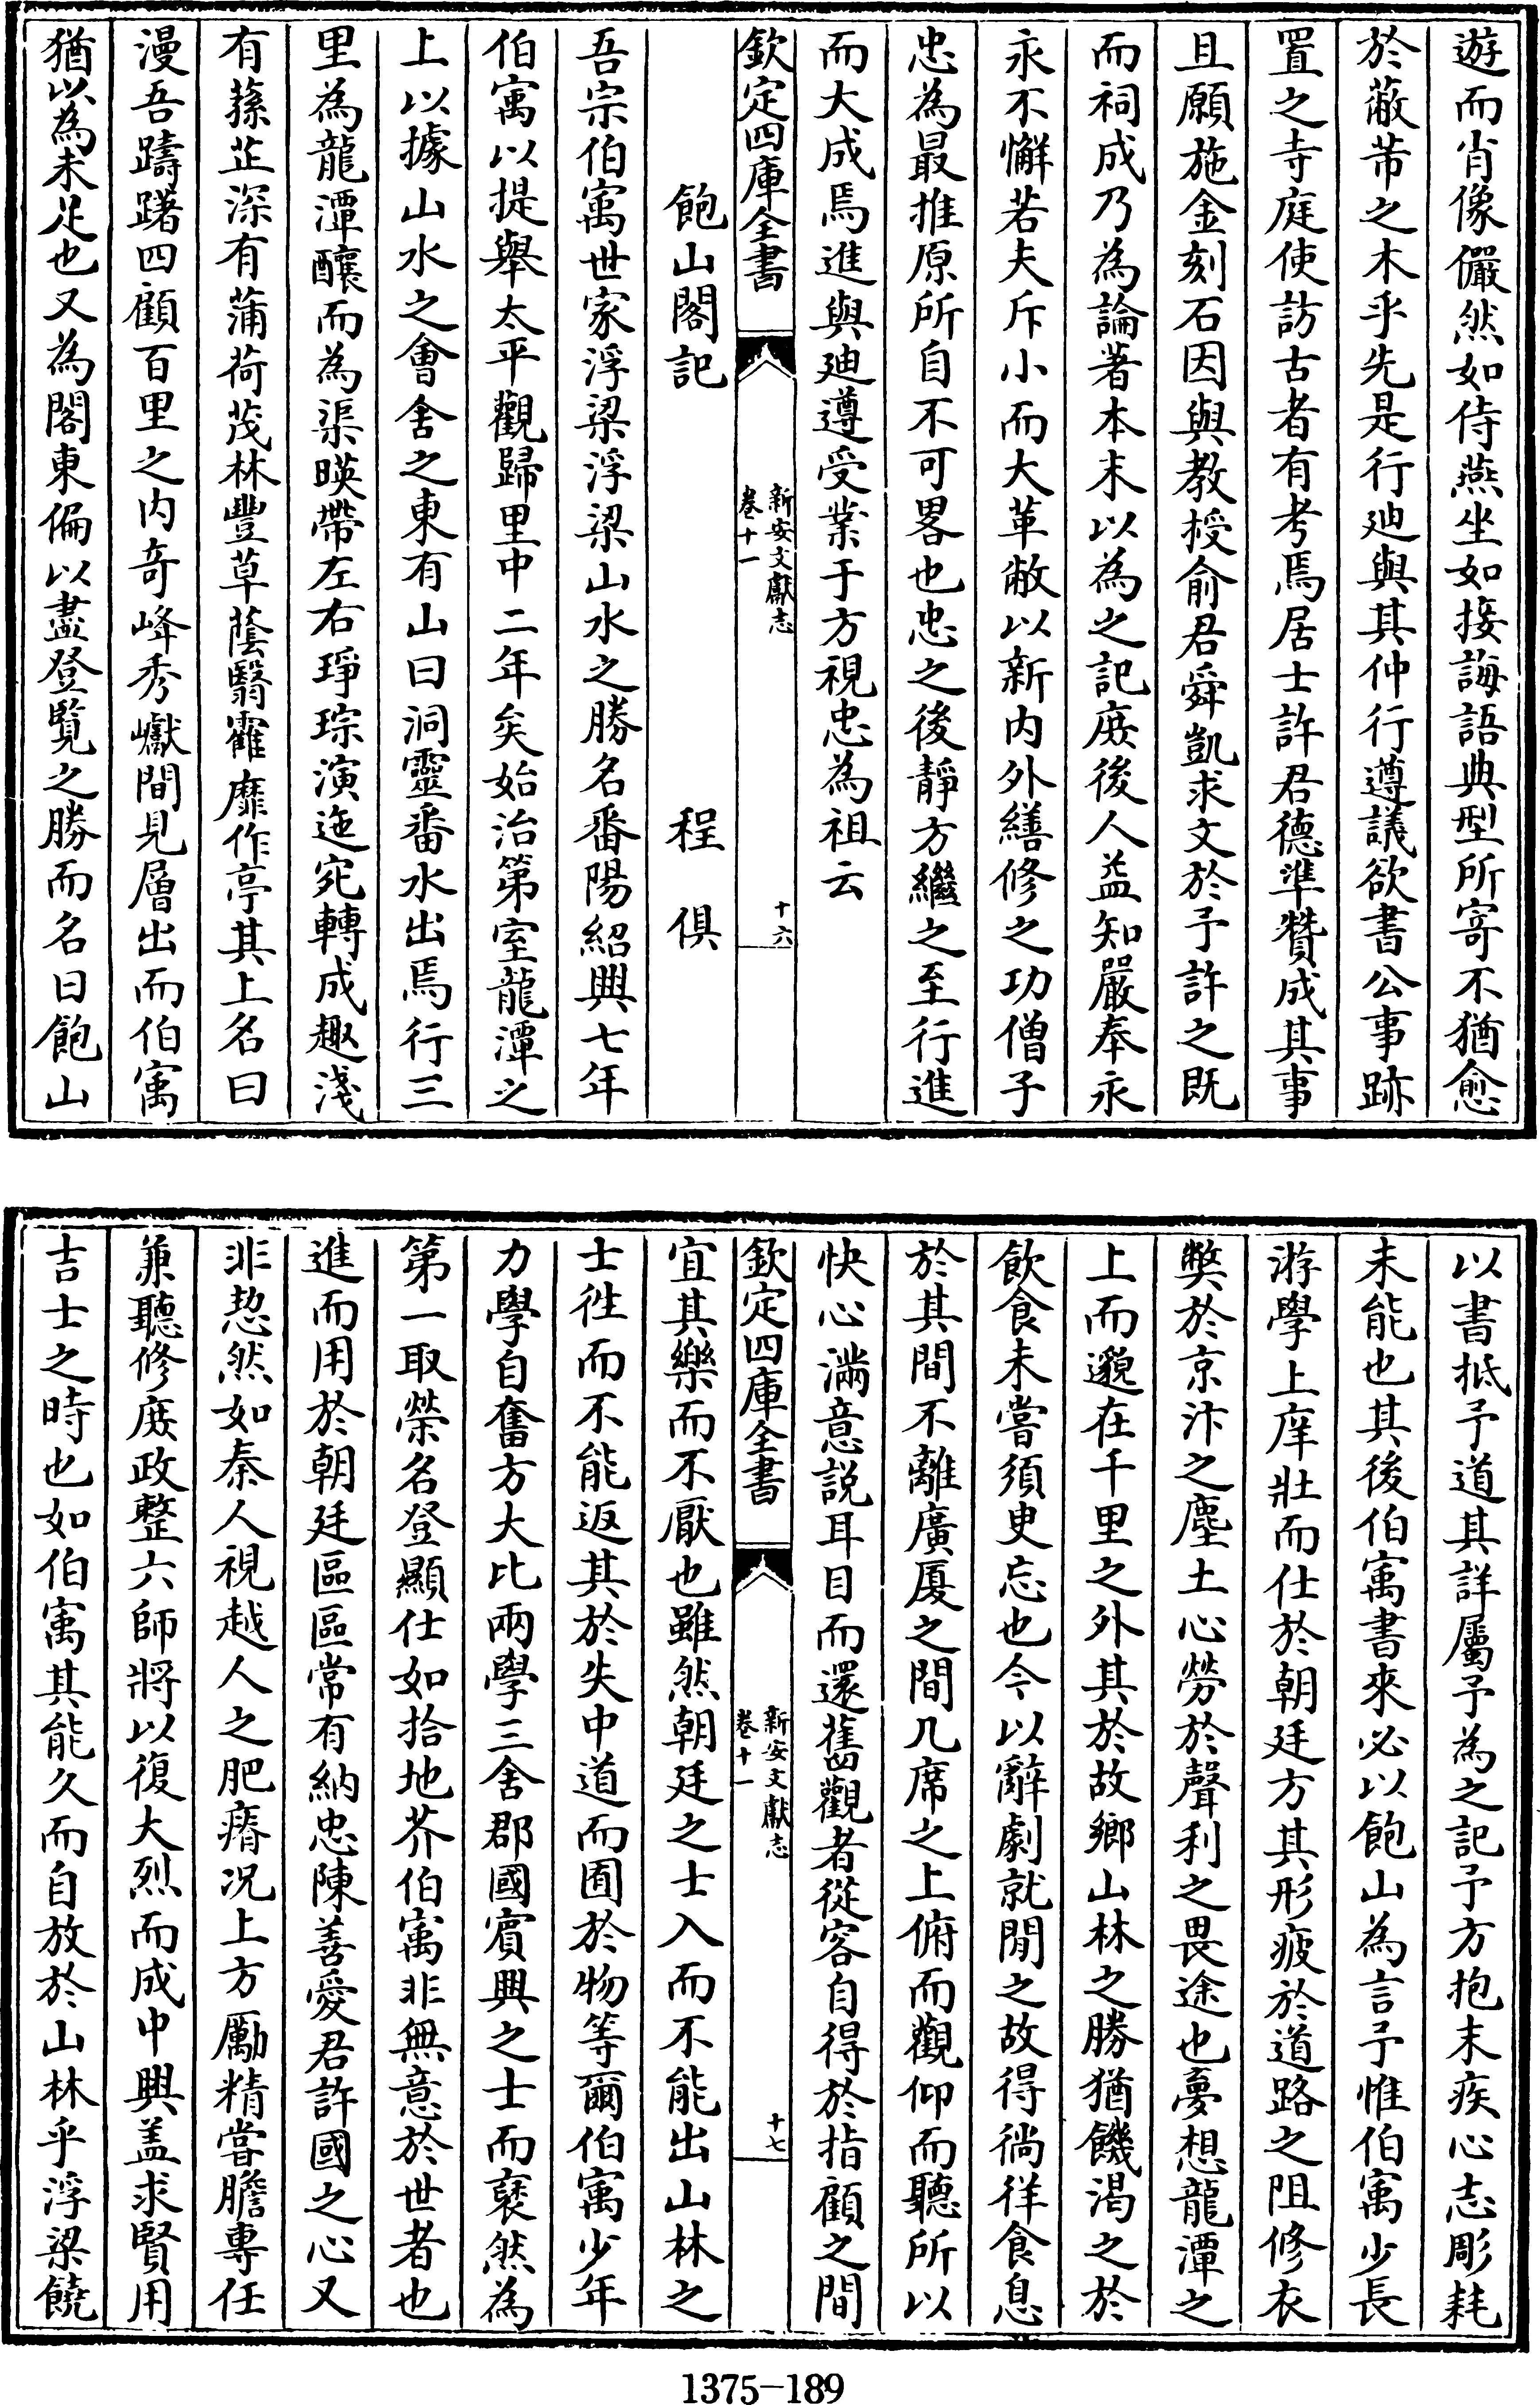 遊而肖像儼然如侍燕坐如接誨語典型所寄不猶愈
於蔽芾之木乎先是行廸與其仲行遵議欲書公事跡
置之寺庭使訪古者有考焉居士許君德準贊成其事
且願施金刻石因與教授俞君舜凱求文於予許之既
而祠成乃為論著本末以為之記庻後人益知嚴奉永
永不懈若夫斥小而大革敝以新内外繕修之功僧子
忠為最推原所自不可畧也忠之後靜方繼之至行進
而大成焉進與廸遵受業于方視忠為祖云
欽定四庫全書
新安文獻志
卷十一
十六
飽山閣記
程俱
吾宗伯㝢世家浮梁浮梁山水之勝名番陽紹興七年
伯㝢以提舉太平觀歸里中二年矣始治第室龍潭之
上以據山水之會舍之東有山曰洞靈番水出焉行三
里為龍潭釀而為渠暎帶左右琤琮演迤宛轉成趣淺
有蓀芷深有蒲荷茂林豐草蔭翳靃靡作亭其上名曰
漫吾躊躇四顧百里之内奇峰秀巘間見層出而伯㝢
猶以為未足也又為閣東偏以盡登覽之勝而名曰飽山
以書抵予道其詳屬予為之記予方抱末疾心志彫耗
未能也其後伯㝢書來必以飽山為言予惟伯㝢少長
游學上庠壯而仕於朝廷方其形疲於道路之阻修衣
獘於京汴之塵土心勞於聲利之畏途也夣想龍潭之
上而邈在千里之外其於故鄉山林之勝猶饑渴之於
飲食未嘗須臾忘也今以辭劇就閒之故得徜徉食息
於其間不離廣厦之間几席之上俯而觀仰而聽所以
快心滿意說耳目而還舊觀者從容自得於指顧之間
欽定四庫全書
新安文獻志
卷十一
十七
宜其樂而不厭也雖然朝廷之士入而不能出山林之
士徃而不能返其於失中道而囿於物等爾伯㝢少年
力學自奮方大比兩學三舍郡國賓興之士而裒然為
第一取榮名登顯仕如拾地芥伯㝢非無意於世者也
進而用於朝廷區區常有納忠陳善愛君許國之心又
非恝然如秦人視越人之肥瘠况上方勵精嘗膽專任
兼聽修庻政整六師將以復大烈而成中興盖求賢用
吉士之時也如伯㝢其能久而自放於山林乎浮梁饒
1375-189